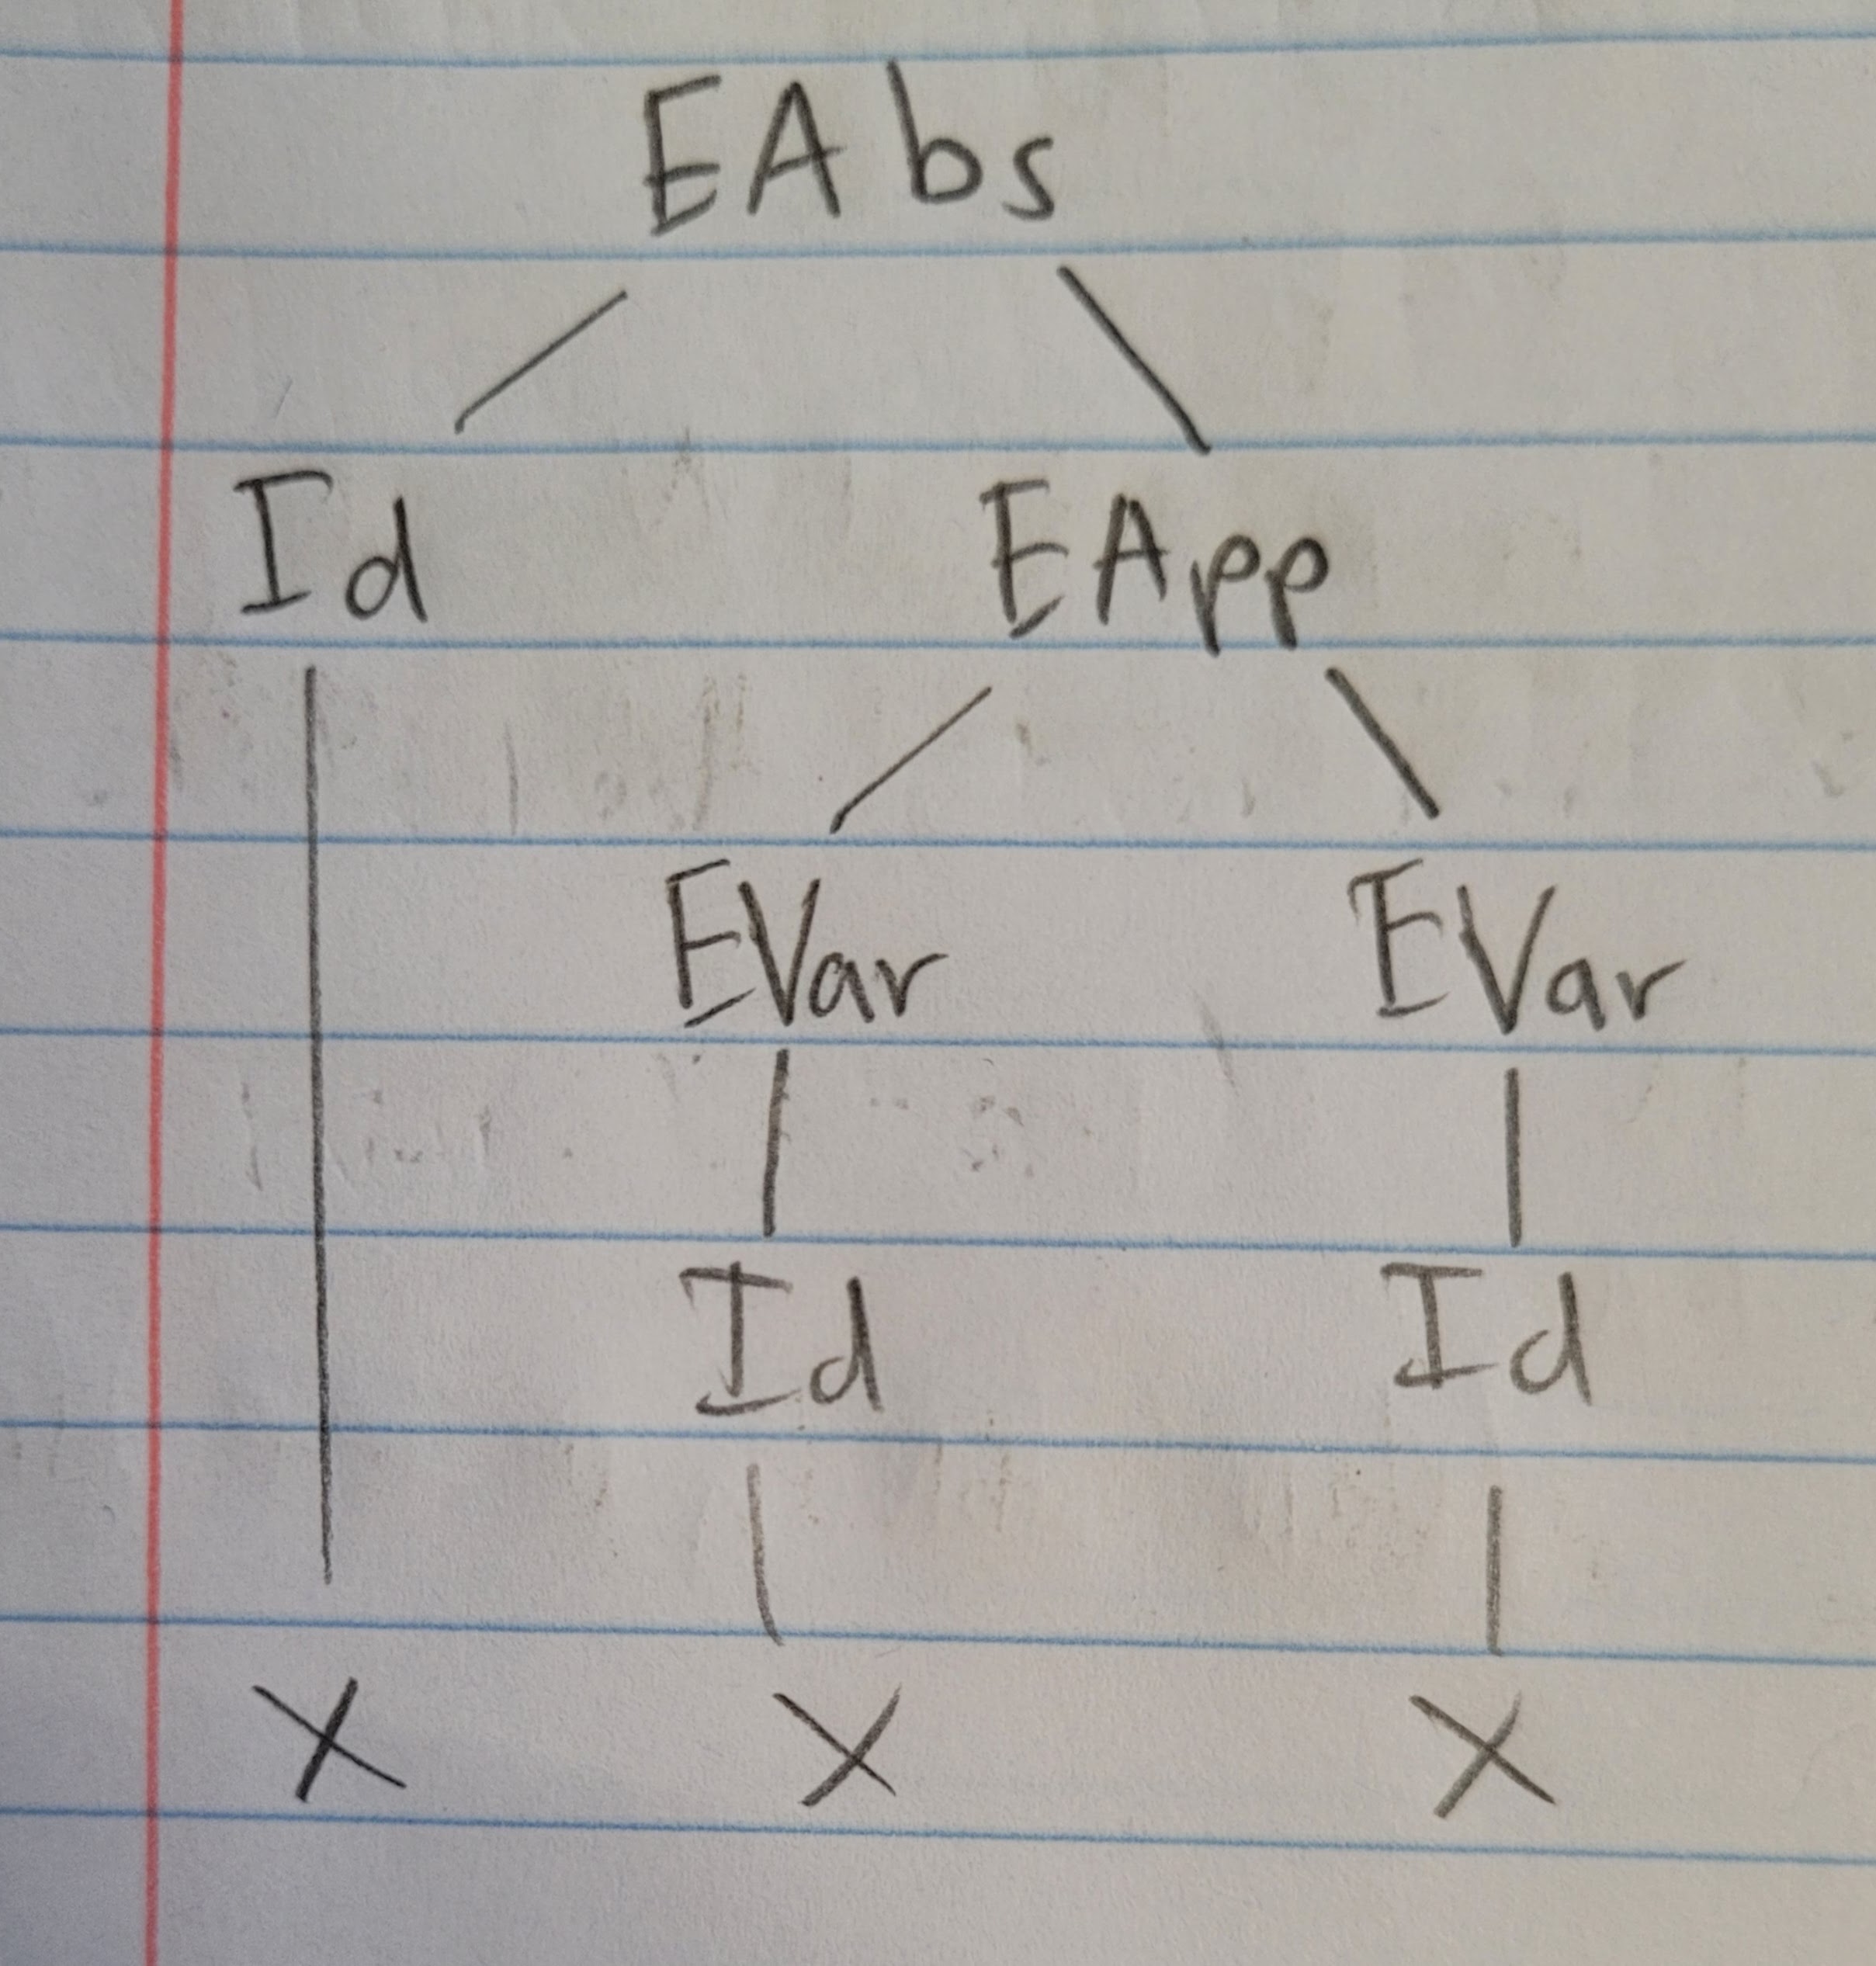 EAbs
Id EApp
EVar EVar
Id Id
X X X